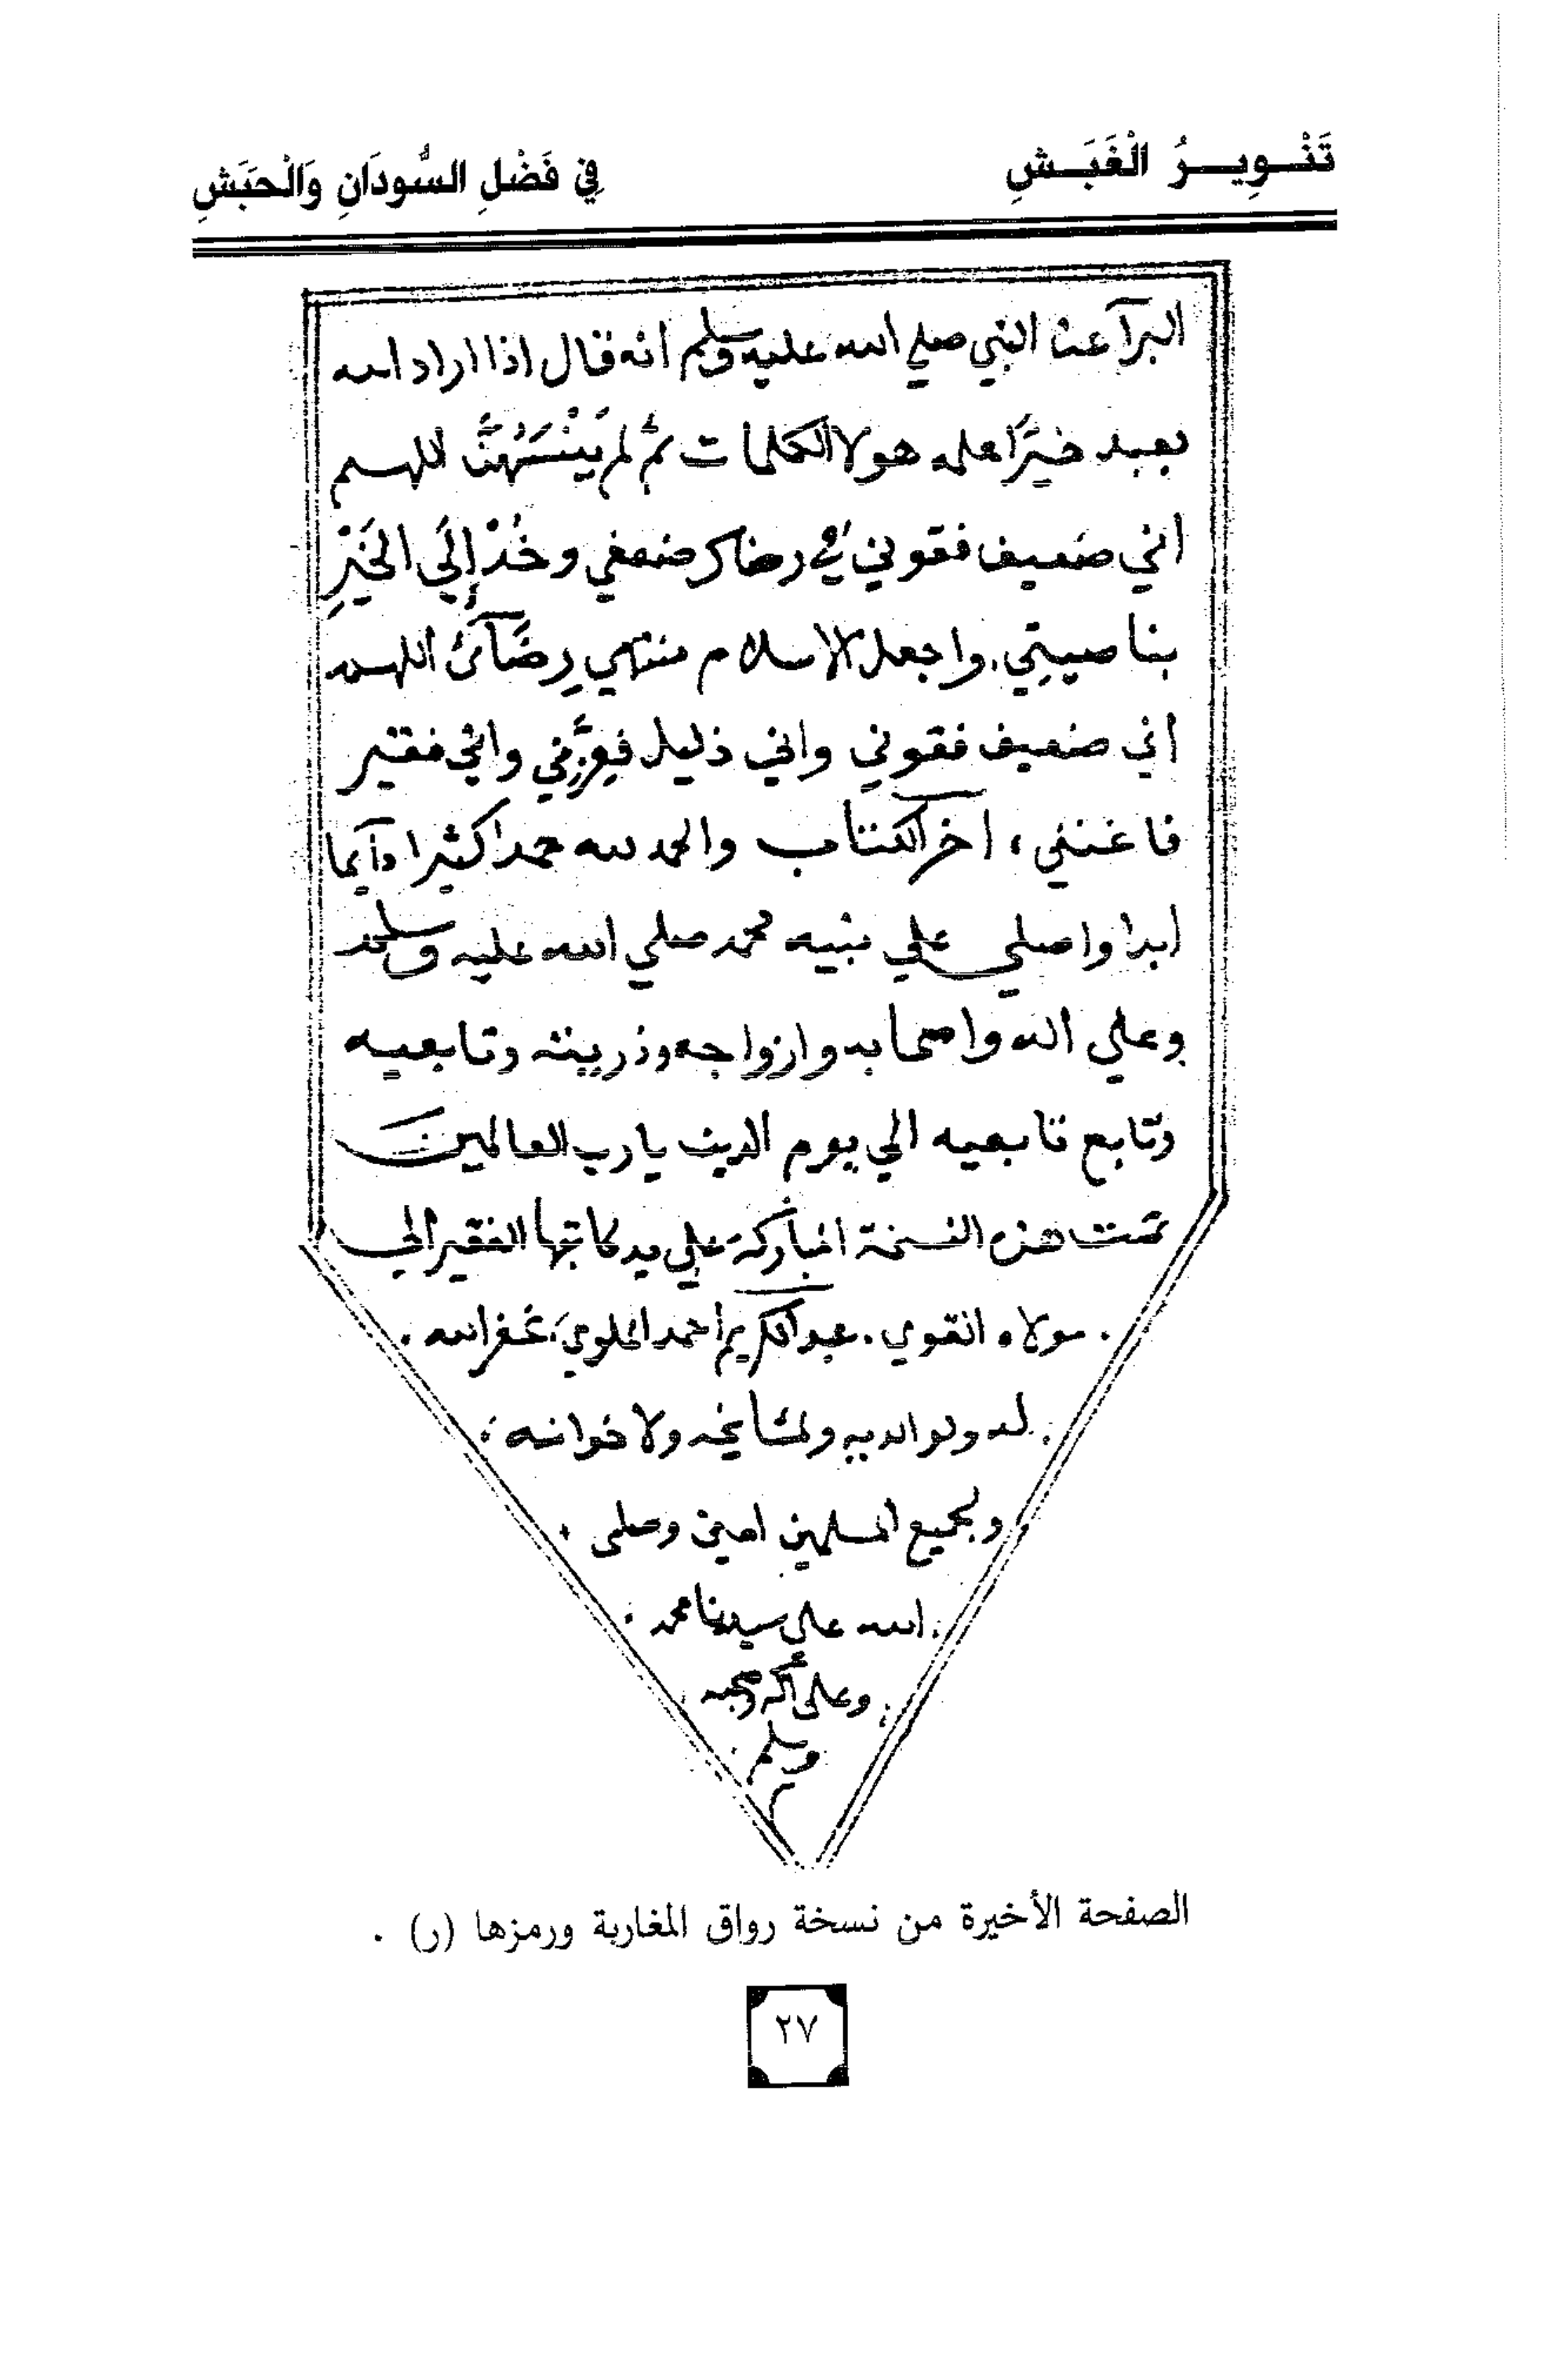 تَنْـــوِيـــرُ الْغَبَـــشِ
فِي فَضْلِ السُّودَانِ وَالْحَبَشِ
البرآ عن النبي صلي الله عليه وسلم انه قال اذا اراد الله
بعبد خيرًا علمه هولا الكلمات ثم لم يَنْسَهُنَّ اللهم
اني ضعيف فقوني في رضاك ضعفي وخُذْ إِلَي الخَيْرِ
بناصيتي. واجعل الاسلام منتهي رِضَآئ اللهم
اني ضعيف فقوني واني ذليل فَعِزَّنِي واني فقير
فاغنني ، اخر الكتاب والحمد لله حمدا كثيرا دآيما
ابدا واصلي علي نبيه محمد صلي الله عليه وسلم
وعلي اله واصحابه وازواجه وذريته وتابعيه
وتابع تابعيه الي يوم الدين يا رب العالمين
تمت هذه النسخة المباركة علي يد كاتبها الفقير الي
. مولاه القوي . عبد الكريم احمد الملوي، غفر الله .
له ولوالديه ولمشايخه ولاخوانه ،
ولجميع المسلمين امين وصلى
الله علي سيدنا محمد .
وعلى آله وصحبه
وسلم
م
الصفحة الأخيرة من نسخة رواق المغاربة ورمزها (ر) .
٢٧